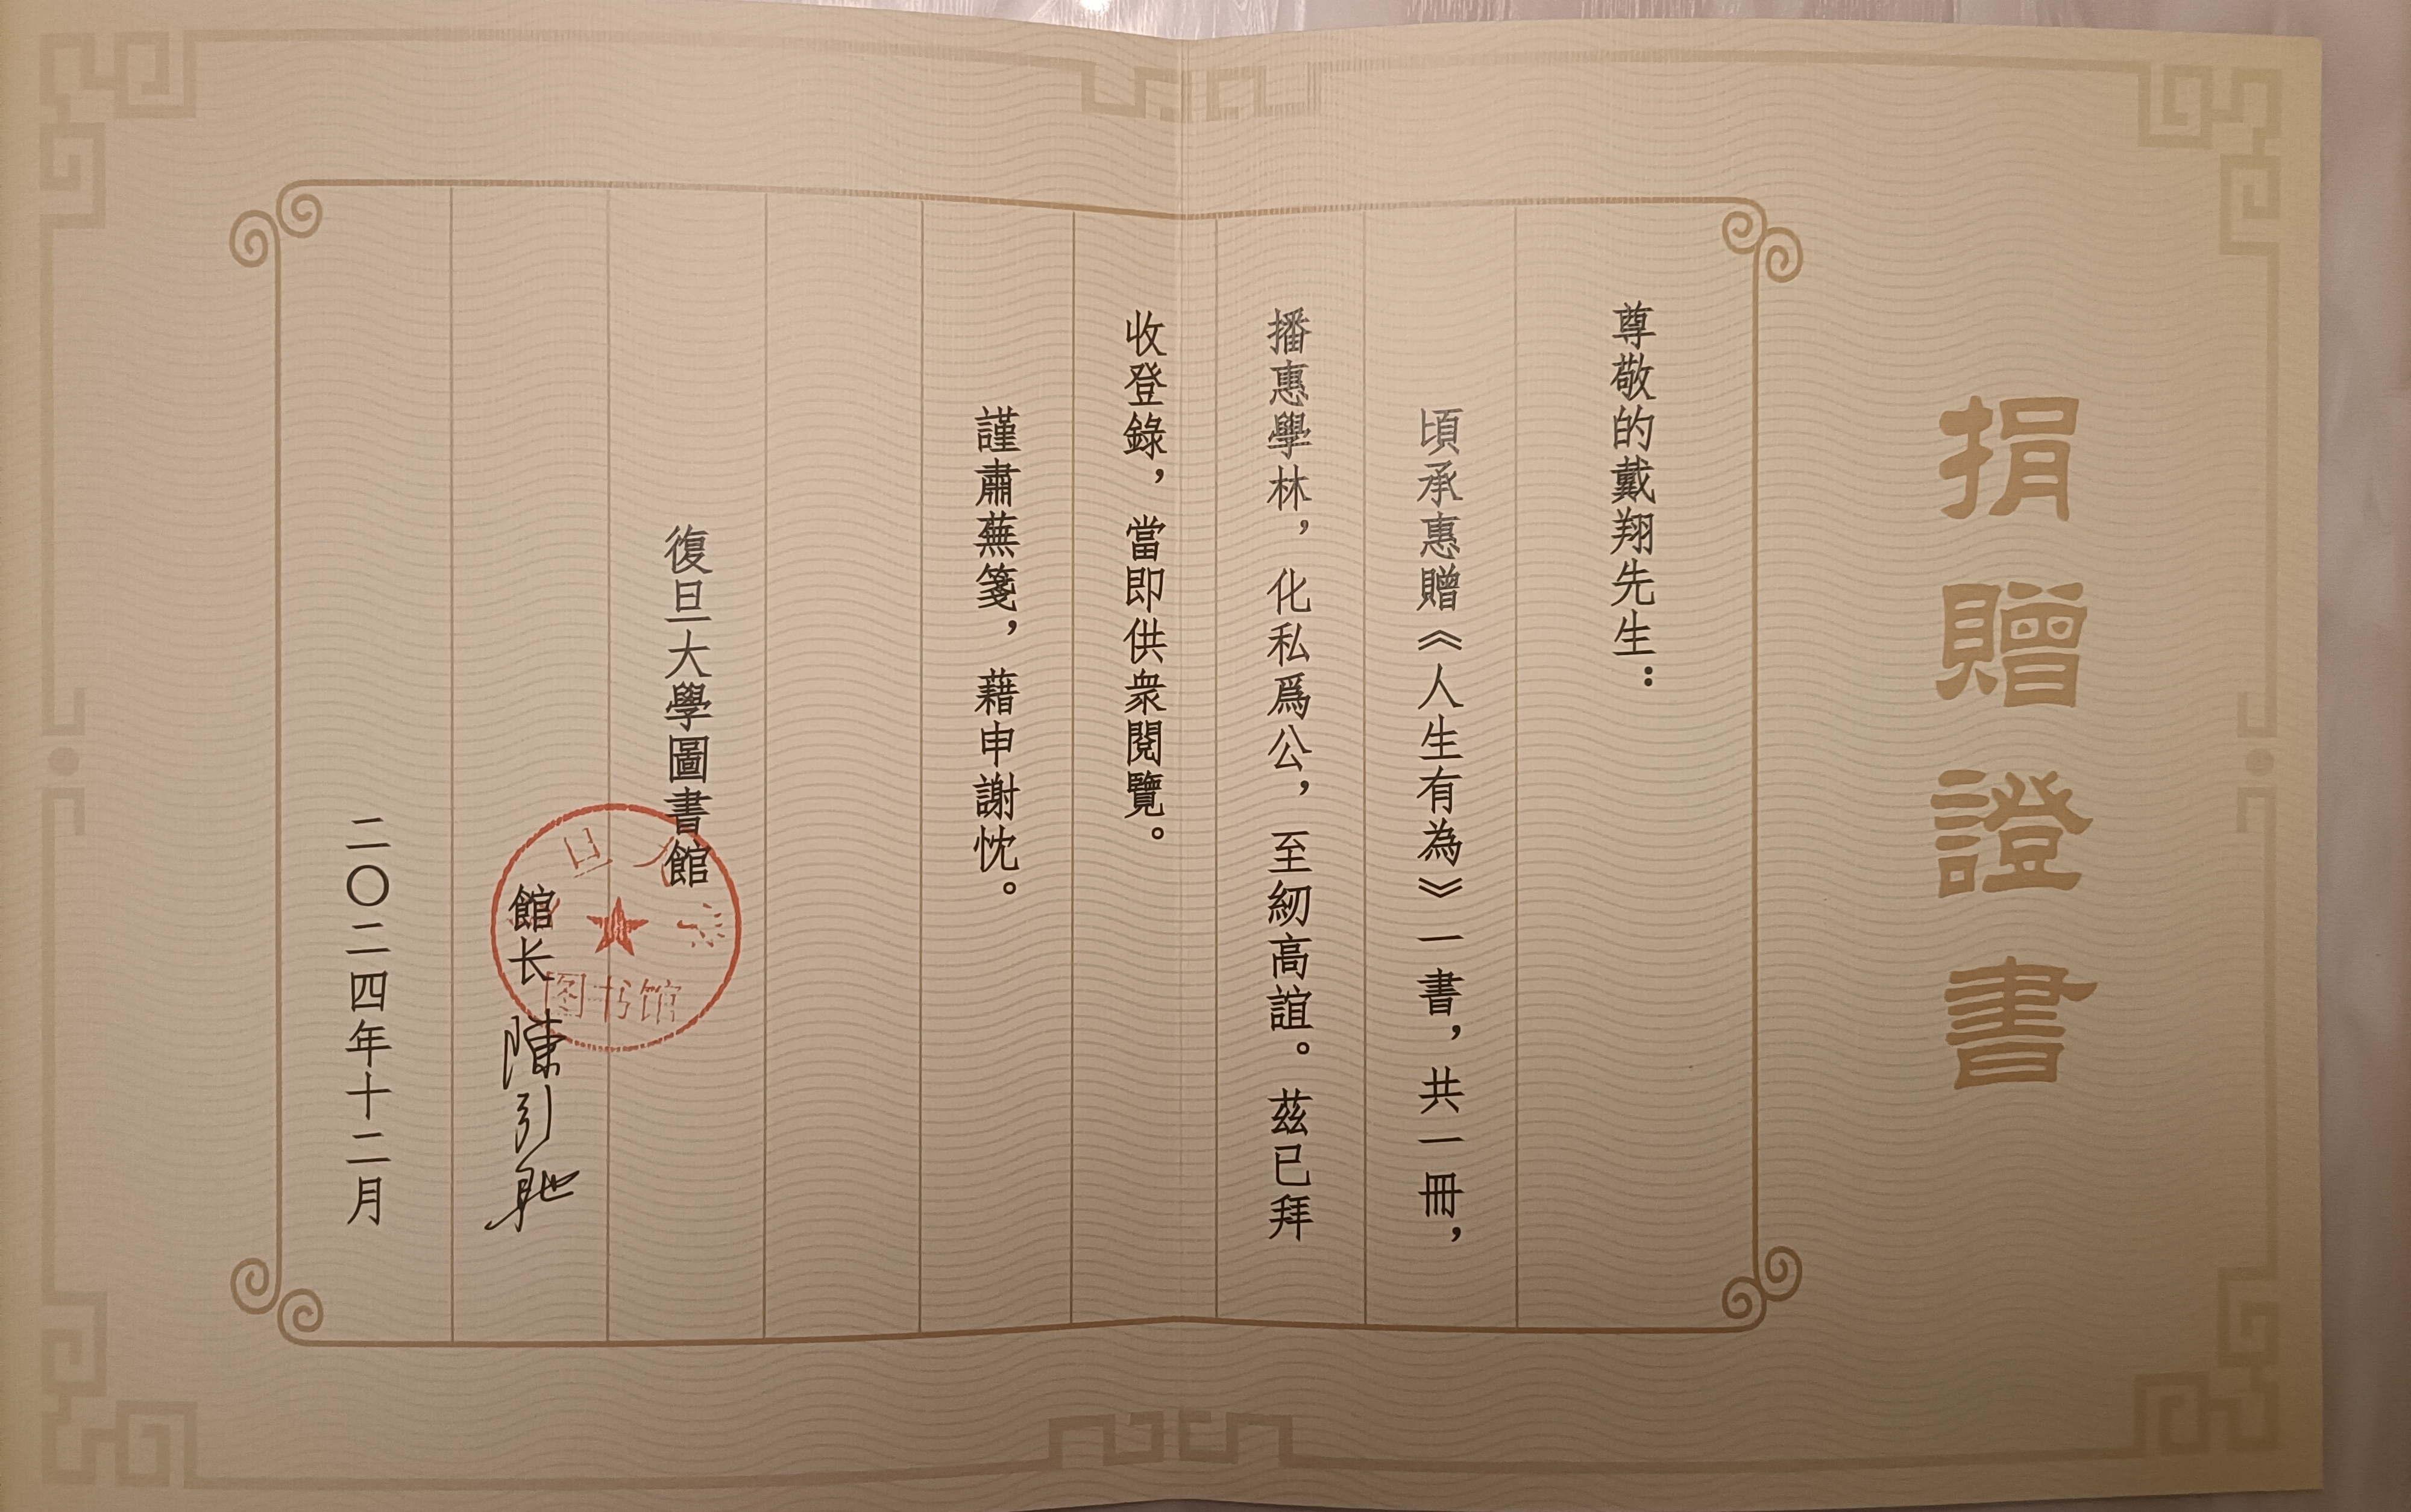 捐贈證書
尊敬的戴翔先生：
頃承惠贈《人生有為》一書，共一冊，
播惠學林，化私爲公，至紉高誼。茲已拜
收登錄，當即供衆閱覽。
謹肅蕪箋，藉申謝忱。
復旦大學圖書館
館长 陳引馳
二〇二四年十二月
旦大
图书馆